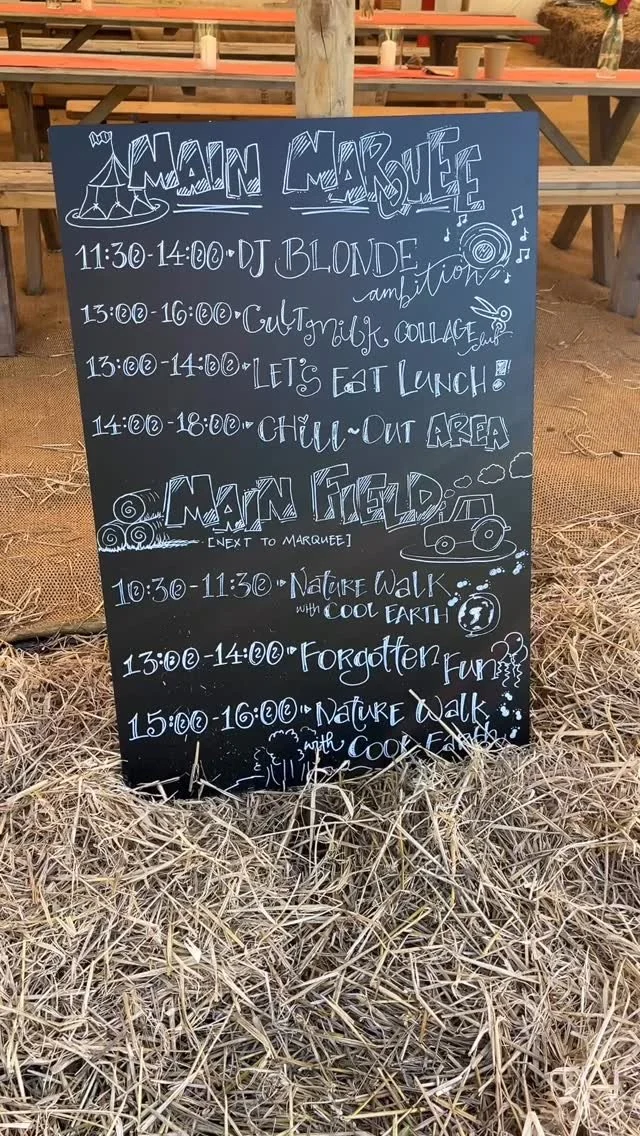 MAIN MARQUEE
11:30-14:00 DJ BLONDE
ambition
13:00-16:00 Cult Milk COLLAGE
club
13:00-14:00 LET'S EAT LUNCH!
14:00-18:00 CHILL~OUT AREA
MAIN FIELD
[NEXT TO MARQUEE]
10:30-11:30 NATURE WALK
with COOL EARTH
13:00-14:00 FORGOTTEN FUN
15:00-16:00 NATURE WALK
with COOL EARTH